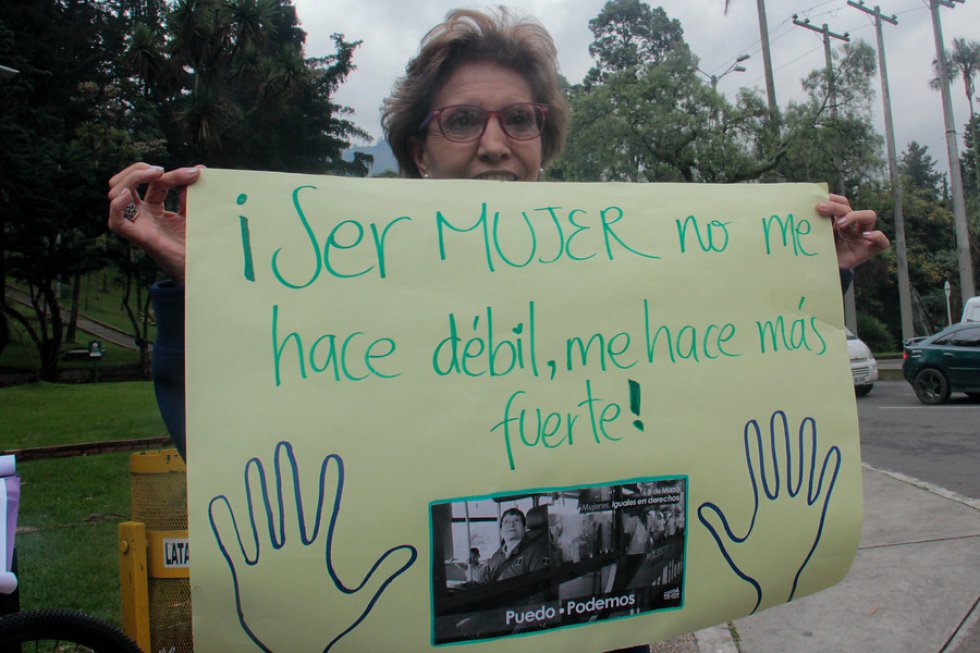 ¡Ser MUJER no me
hace débil, me hace más
fuerte!
8 de Marzo
Mujeres. Iguales en derechos
Puedo • Podemos
LATA